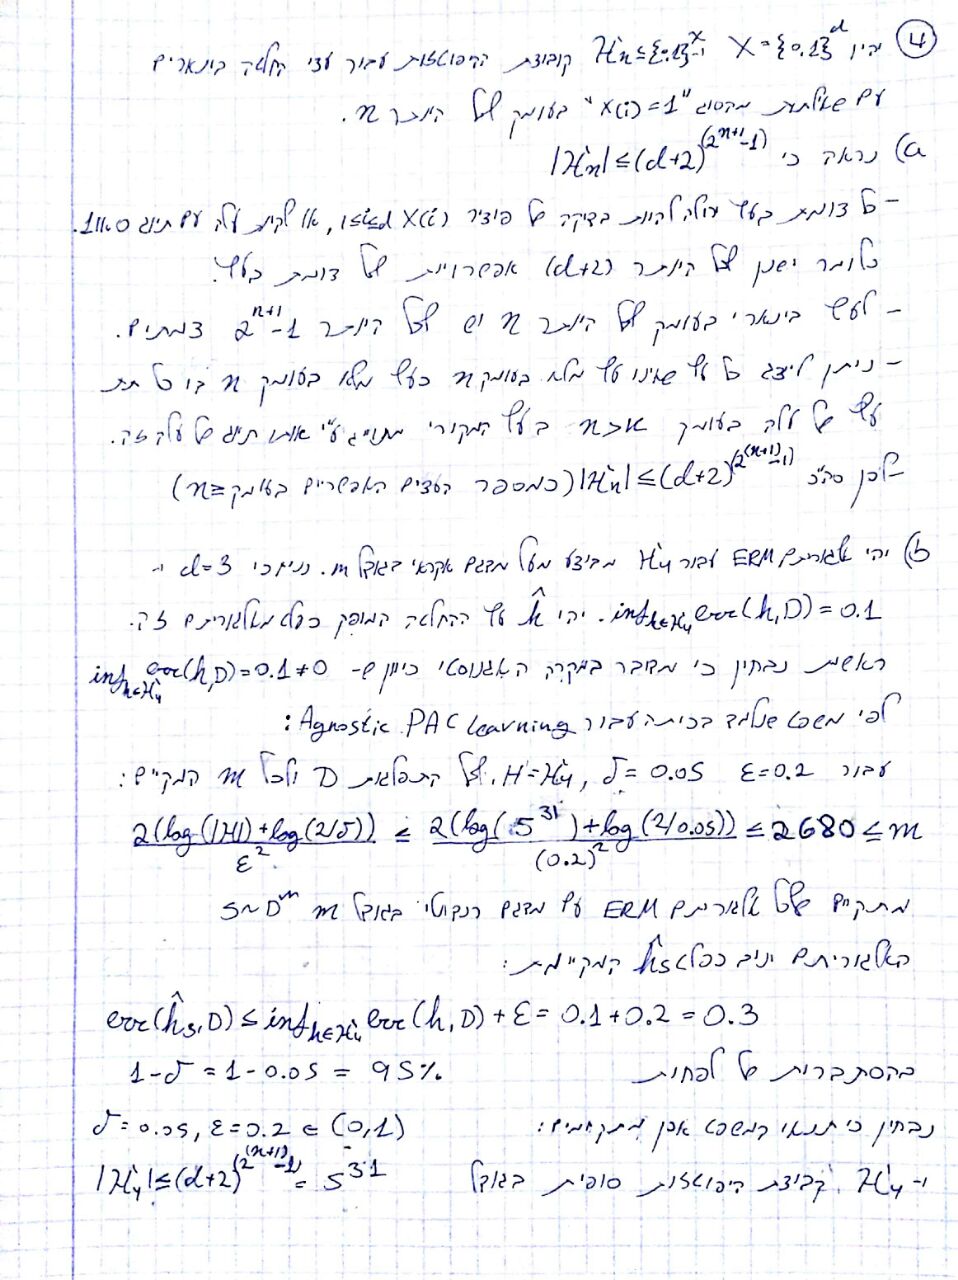 ④ יהיו X = {0,1}^d ℋn ⊆ {0,1}^X קבוצת ההיפוטזות עבור עצי החלטה בינאריים
עם שאילתות מהסוג "X(i)=1" בעומק לכל היותר n.
a) נראה כי |ℋn| ≤ (d+2)^(2^{n+1}-1)
- כל צומת בעץ יכולה להיות בדיקה של פיצ'ר X(i) 1≤i≤d, או להיות עלה עם תיוג 0 או 1.
כלומר ישנן לכל היותר (d+2) אפשרויות לכל צומת בעץ.
- לעץ בינארי בעומק לכל היותר n יש לכל היותר 2^{n+1}-1 צמתים.
- ניתן לייצג כל עץ שאינו עץ מלא בעומק n כעץ מלא בעומק n בו כל תת
עץ של עלה בעומק n> בעץ המקורי מתוייג ע"י אותו תיוג של עלה זה.
- לכן סה"כ |ℋn| ≤ (d+2)^(2^{(n+1)}-1) (כמספר העצים האפשריים בעומק ≥n)
b) יהי אלגוריתם ERM עבור ℋ4 מבוצע מעל מדגם אקראי בגודל m. נניח כי d=3 ו-
inf_{h∈ℋ4} err(h,D) = 0.1. יהי ĥ עץ ההחלטה המופק כפלט מאלגוריתם זה.
ראשית נבחין כי מדובר במקרה האגנוסטי כיוון ש- inf_{h∈ℋ4} err(h,D)=0.1≠0
לפי משפט שנלמד בכיתה עבור Agnostic PAC Learning:
עבור ε=0.2 δ=0.05, H=ℋ4, לכל התפלגות D ולכל m המקיים:
2(log(|H|)+log(2/δ))/ε² ≤ 2(log(5^31)+log(2/0.05))/(0.2)² ≤ 2680 ≤ m
מתקיים שלכל אלגוריתם ERM עם מדגם בגודל m S~D^m
האלגוריתם יניב כפלט ĥs המקיימת:
err(ĥs,D) ≤ inf_{h∈ℋ4} err(h,D) + ε = 0.1+0.2 = 0.3
בהסתברות של לפחות 1-δ = 1-0.05 = 95%
נבחין כי תנאי המשפט אכן מתקיימים: δ=0.05, ε=0.2 ∈ (0,1)
ו- ℋ4 קבוצת היפוטזות סופית בגודל |ℋ4| ≤ (d+2)^(2^{(n+1)}-1) = 5^31